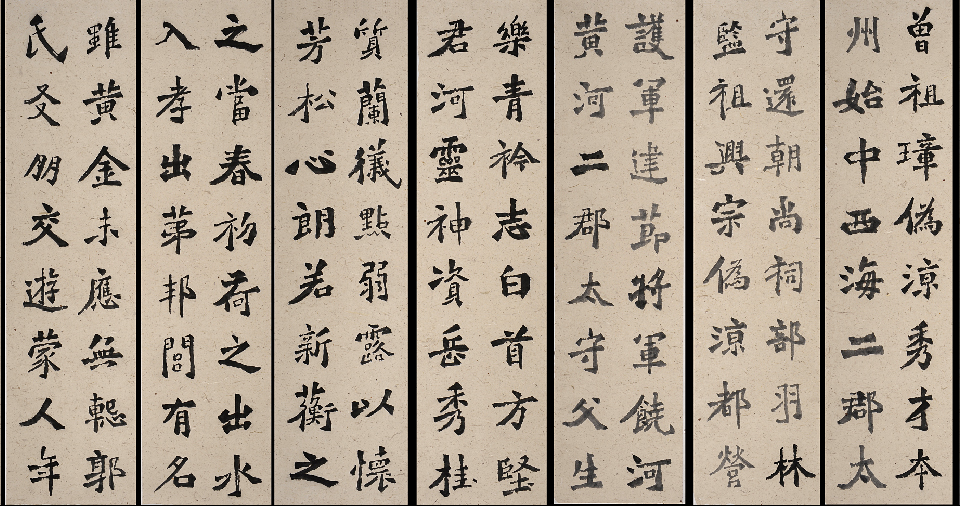 曾祖璋偽涼秀才本
州始中西海二郡太
守還朝尚祠部羽林
監祖興宗偽涼都營
護軍建節將軍饒河
黃河二郡太守父生
樂青衿志白首方堅
君河靈神資岳秀桂
質蘭儀點弱露以懷
芳松心朗若新蘅之
之當春初荷之出水
入孝出第邦閭有名
雖黃金未應無慙郭
氏友朋交遊蒙人年